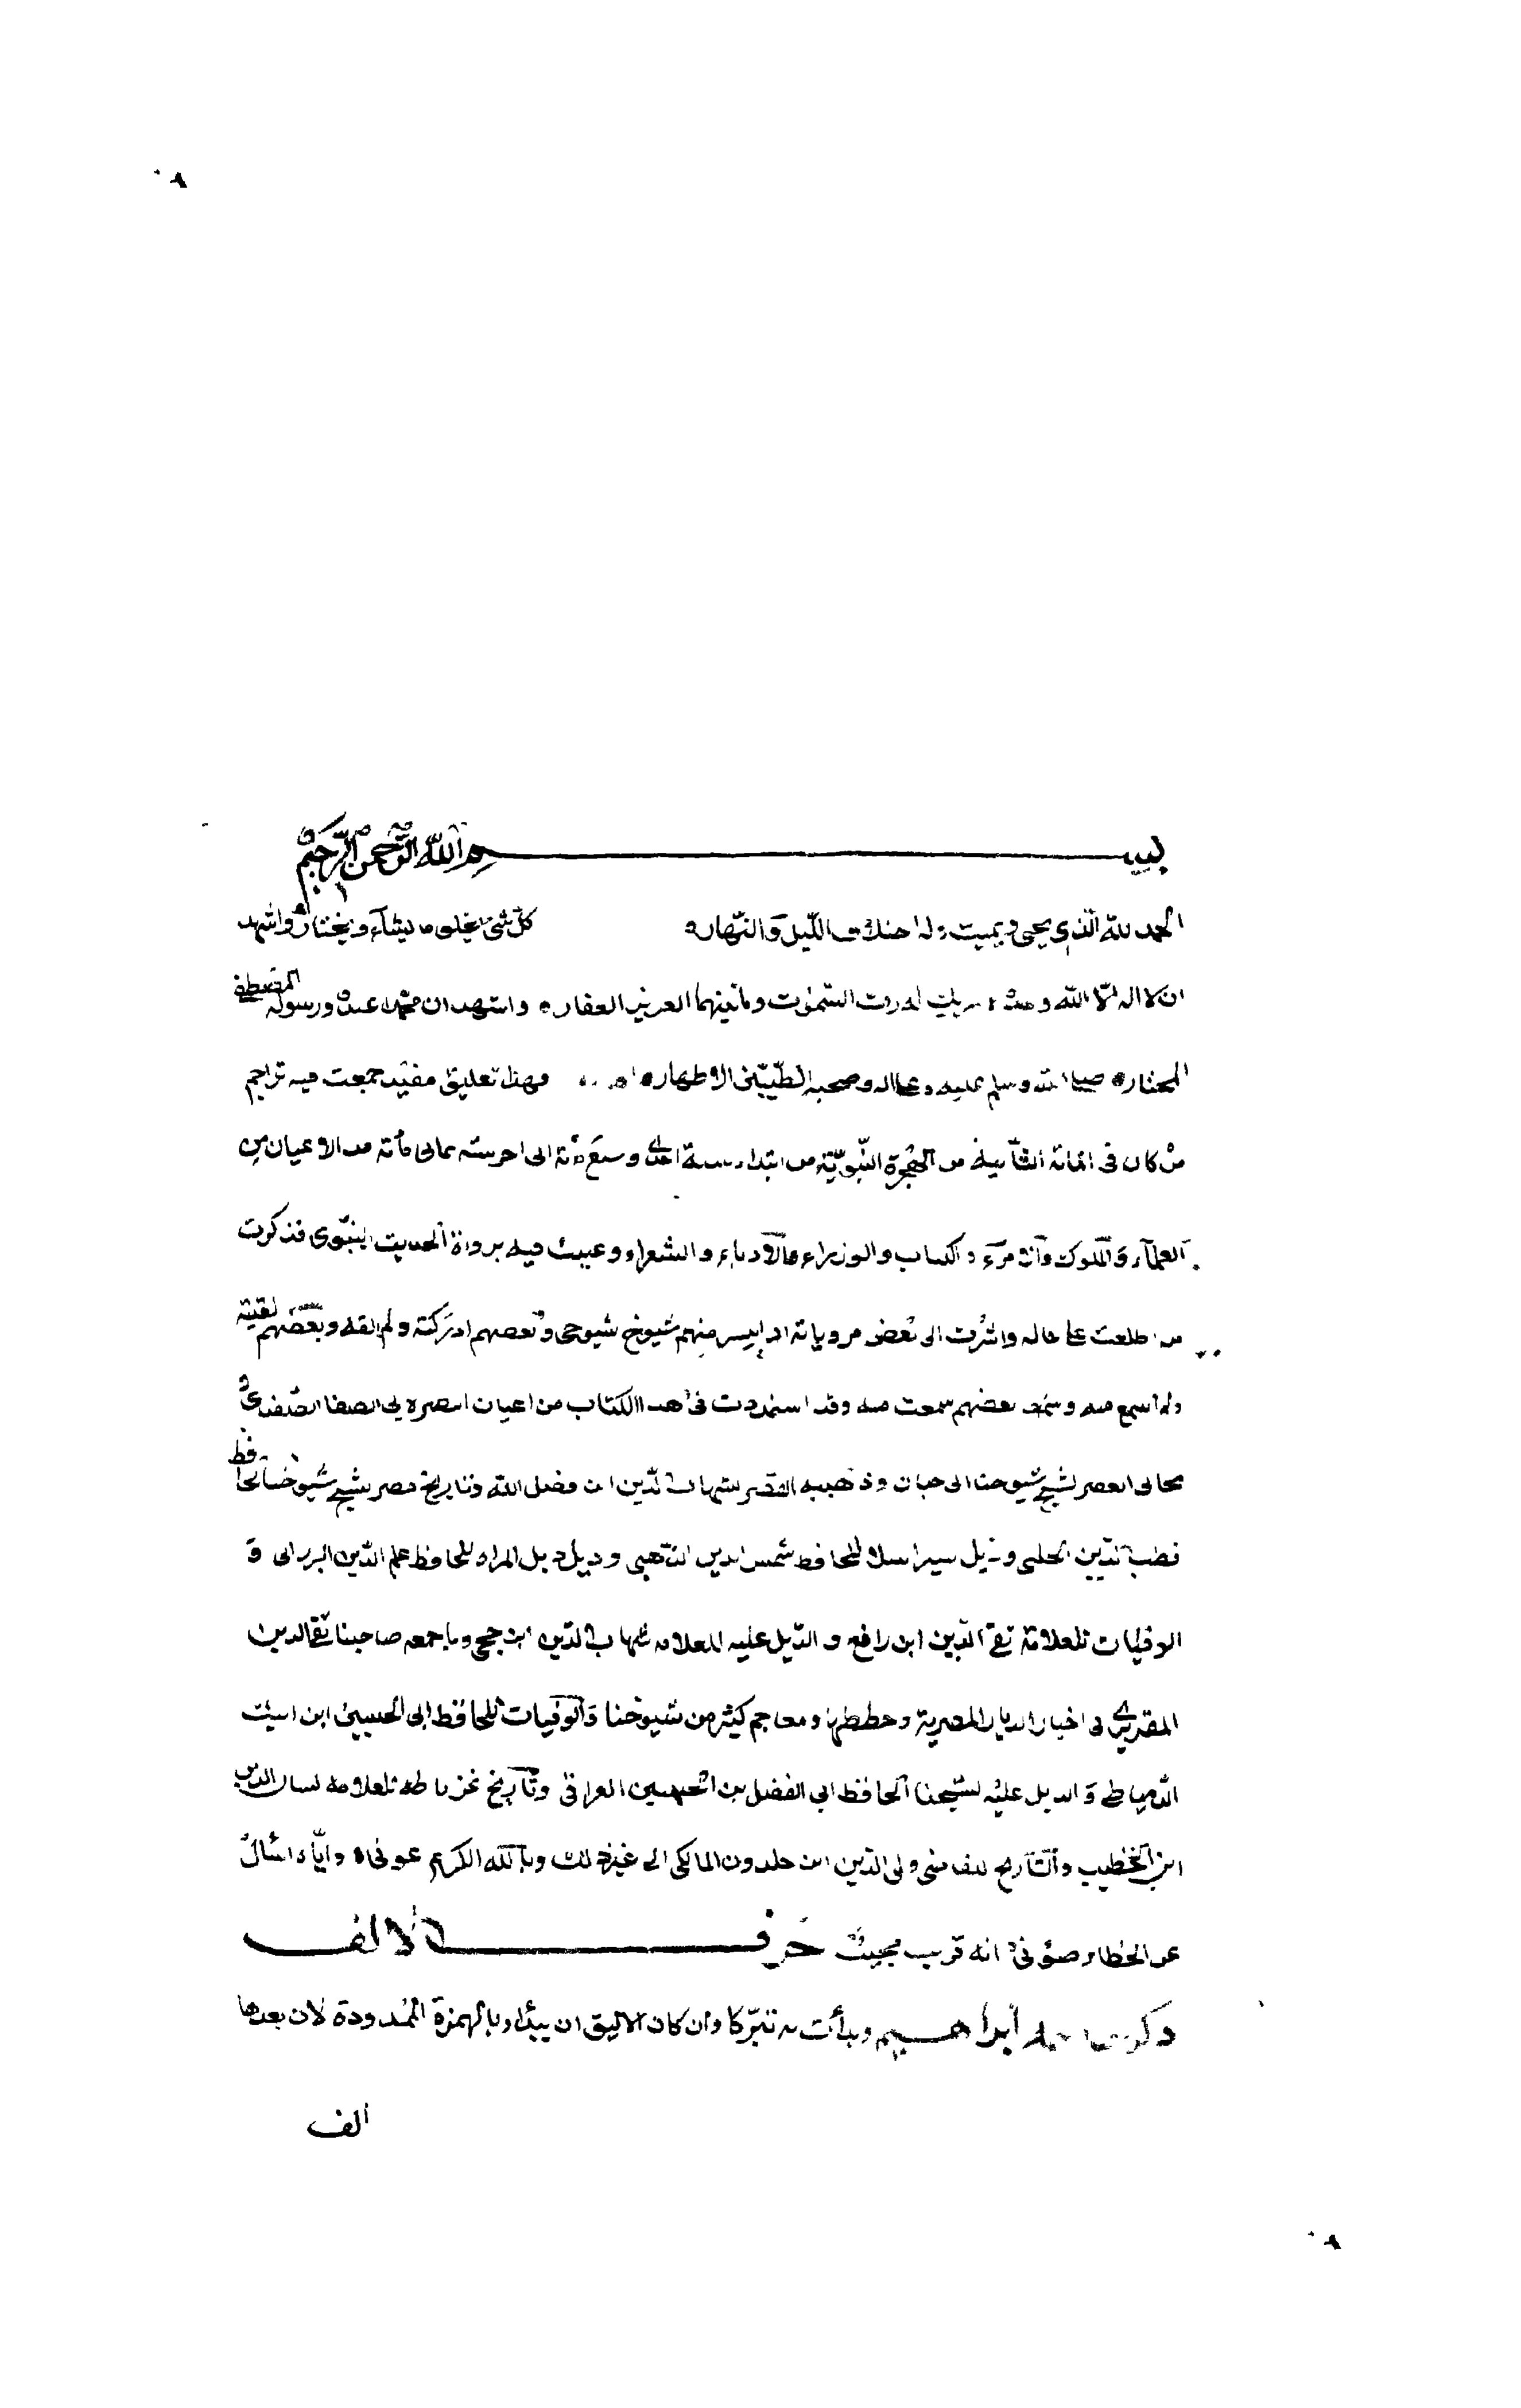 بسم الله الرحمن الرحيم
الحمد لله الذي يحيى ويميت وله اختلاف الليل والنهار كل شئ يخلق ما يشآء ويختار واشهد
ان لا اله الا الله وحده لا شريك له رب السموات وما بينهما العزيز الغفار واشهد ان محمدا عبده ورسوله المصطفى
المختار صلى الله وسلم عليه وعلى اله وصحبه الطيبين الاطهار فهذا تعليق مفيد جمعت فيه تراجم
من كان في المائة الثامنة من الهجرة النبوية من ابتداء سنة احدى وسبعمائة الى اخر سنة ثمانى مائة من الاعيان من
العلمآء والملوك والامرآء والكتاب والوزراء والادباء والشعراء وعنيت فيه برواة الحديث النبوى فذكرت
من اطلعت على حاله واشرت الى بعض مروياته اذ منهم شيوخ شيوخى وبعضهم ادركته ولم القه وبعضهم لقيته
ولم اسمع منه وبعضهم سمعت منه وقد استمددت فى هذا الكتاب من اعيان العصر لابى الصفا الصفدى
مجانى العصر لشيخ شيوخنا ابى حيان وذهبية القصر لشهاب الدين ابن فضل الله وتاريخ مصر لشيخ شيوخنا الحافظ
قطب الدين الحلبى وذيل سير النبلا للحافظ شمس الدين الذهبى وذيل ذيل المراه للحافظ علم الدين البرزالى و
الوفيات للعلامة تقى الدين ابن رافع والذيل عليه للعلامه شهاب الدين ابن حجى وما جمعه صاحبنا تقى الدين
المقريزى فى اخبار الديار المصرية وخططها ومعاجم كثيره من شيوخنا والوفيات للحافظ ابى الحسين ابن ايبك
الدمياطى والذيل عليه لشيخنا الحافظ ابى الفضل بن الحسين العراقى وتاريخ غرناطه للعلامه لسان الدين
ابن الخطيب والتاريخ للقاضى ولى الدين ابن خلدون المالكى الى غير ذلك وبالله الكريم عونى واياه اسأل
عن الخطاء صونى انه قريب مجيب حرف الالف
ذكر من اسمه ابراهيم وبدأت به تبركا وان كان الاليق ان يبدأ بالهمزة الممدودة لان بعدها
الف